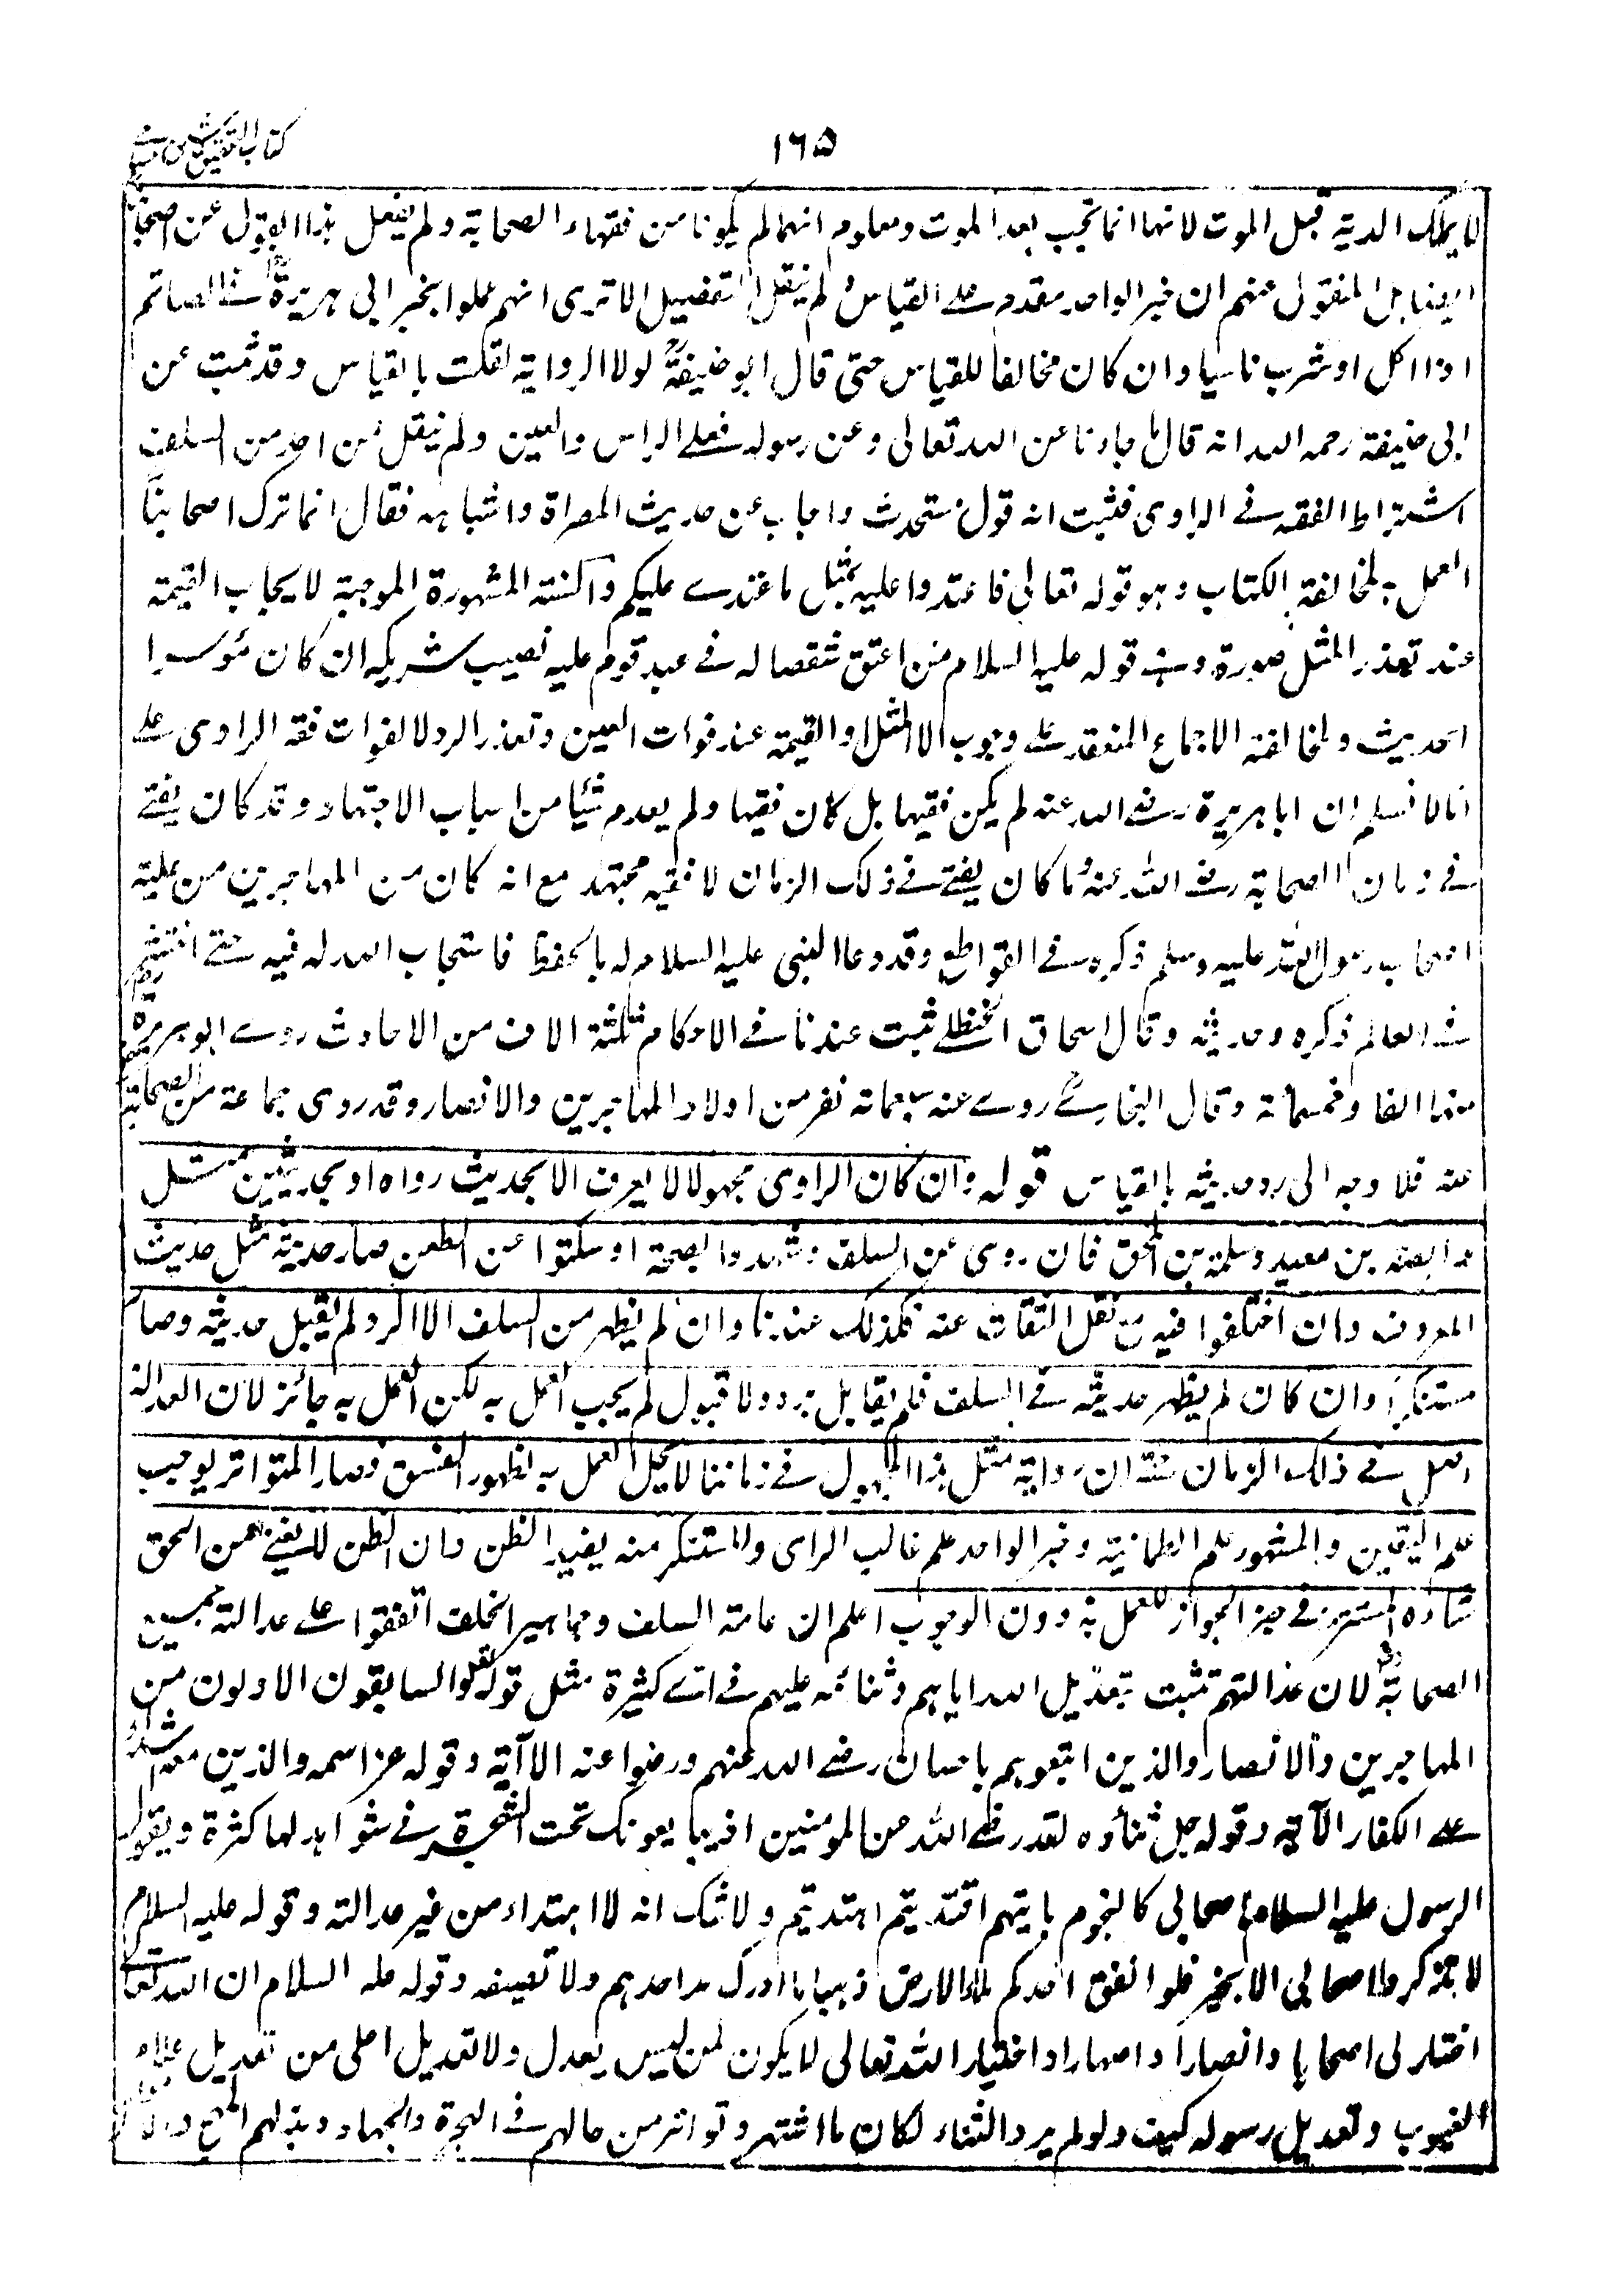 ١٦٥
كتاب التحقيق
لا يملك الدية قبل الموت لانها انما تجب بعد الموت ومعلوم انهما لم يكونا من فقهاء الصحابة ولم ينقل هذا القول عن اصحابنا
ايضا بل المنقول عنهم ان خبر الواحد مقدم على القياس ولم ينقل التفصيل الا ترى انهم عملوا بخبر ابى هريرة رض فى الصائم
اذا اكل او شرب ناسيا وان كان مخالفا للقياس حتى قال ابو حنيفة رح لولا الرواية لقلت بالقياس وقد ثبت عن
ابى حنيفة رحمه الله انه قال ما جاءنا عن الله تعالى وعن رسوله فعلى الراس والعين ولم ينقل عن احد من السلف
اشتراط الفقه فى الراوى فثبت انه قول مستحدث واجاب عن حديث المصراة واشباهه فقال انما ترك اصحابنا
العمل به لمخالفته الكتاب وهو قوله تعالى فاعتدوا عليه بمثل ما اعتدى عليكم والسنة المشهورة الموجبة لايجاب القيمة
عند تعذر المثل صورة وهى قوله عليه السلام من اعتق شقصا له فى عبد قوم عليه نصيب شريكه ان كان موسرا
الحديث ولمخالفته الاجماع المنعقد على وجوب المثل او القيمة عند فوات العين وتعذر الرد لا لفوات فقه الراوى على
انا لا نسلم ان ابا هريرة رضى الله عنه لم يكن فقيها بل كان فقيها ولم يعدم شيئا من اسباب الاجتهاد وقد كان يفتى
فى زمان الصحابة رضى الله عنهم وما كان يفتى فى ذلك الزمان الا فقيه مجتهد مع انه كان من المهاجرين من علية
اصحاب رسول الله صلى الله عليه وسلم ذكره فى القواطع وقد دعا النبى عليه السلام له بالحفظ فاستجاب الله له فيه حتى انتشر
فى العالم ذكره وحديثه وقال اسحاق الحنظلى ثبت عندنا فى الاحكام ثلثة الاف من الاحاديث روى ابو هريرة
منها الفا وخمسمائة وقال البخارى روى عنه سبعمائة نفر من اولاد المهاجرين والانصار وقد روى جماعة من الصحابة
عنه فلا وجه الى رد حديثه بالقياس قوله وان كان الراوى مجهولا لا يعرف الا بحديث رواه او بحديثين مثل
وابصة بن معبد وسلمة بن المحبق فان روى عن السلف وشهدوا بصحته او سكتوا عن الطعن صار حديثه مثل حديث
المعروف وان اختلفوا فيه مع نقل الثقات عنه فكذلك عندنا وان لم يظهر من السلف الا الرد لم يقبل حديثه وصار
مستنكرا وان كان لم يظهر حديثه فى السلف فلم يقابل برد ولا قبول لم يجب العمل به لكن العمل به جائز لان العدالة
اصل فى ذلك الزمان حتى ان رواية مثل هذا المجهول فى زماننا لا يحل العمل به لظهور الفسق وصار المتواتر يوجب
علم اليقين والمشهور علم الطمانينة وخبر الواحد علم غالب الراى والمستنكر منه يفيد الظن وان الظن لا يغنى من الحق
شيئا والمستتر فى حيز الجواز للعمل به دون الوجوب اعلم ان عامة السلف وجماهير الخلف اتفقوا على عدالة جميع
الصحابة رض لان عدالتهم تثبت بتعديل الله اياهم وثنائه عليهم فى آى كثيرة مثل قوله تعالى والسابقون الاولون من
المهاجرين والانصار والذين اتبعوهم باحسان رضى الله عنهم ورضوا عنه الآية وقوله عز اسمه والذين معه اشداء
على الكفار الآية وقوله جل ثناؤه لقد رضى الله عن المومنين اذ يبايعونك تحت الشجرة فى شواهد لها كثرة وبقول
الرسول عليه السلام اصحابى كالنجوم بايهم اقتديتم اهتديتم ولا شك انه لا اهتداء من غير عدالة وقوله عليه السلام
لا تذكروا اصحابى الا بخير فلو انفق احدكم ملأ الارض ذهبا ما ادرك مد احدهم ولا نصيفه وقوله عليه السلام ان الله تعالى
اختار لى اصحابا وانصارا واصهارا واختيار الله تعالى لا يكون لمن ليس بعدل ولا تعديل اصلى من تعديل علام
الغيوب وتعديل رسوله كيف ولو لم يرد الثناء لكان ما اشتهر وتواتر من حالهم فى الهجرة والجهاد وبذلهم المهج